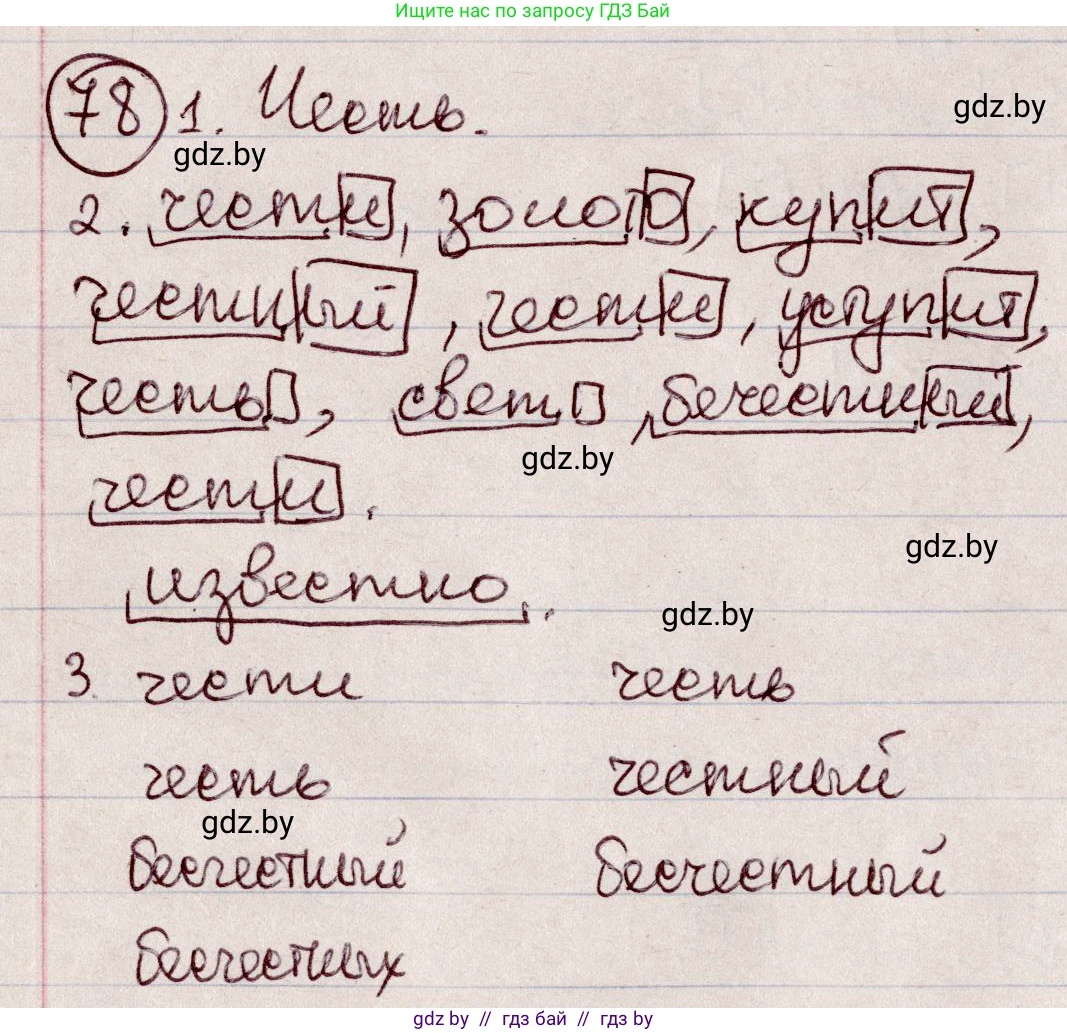 Ищите нас по запросу ГДЗ Бай
78 1. Честь.
gdz.by
gdz.by
2. чести, золото, купит,
честный, чести, уступит,
честь, свет, бечестный,
gdz.by
чести.
gdz.by
известно.
gdz.by
3. чести честь
честь честный
gdz.by
бесчестный бесчестный
бесчестных
gdz by // гдз бай // гдз by